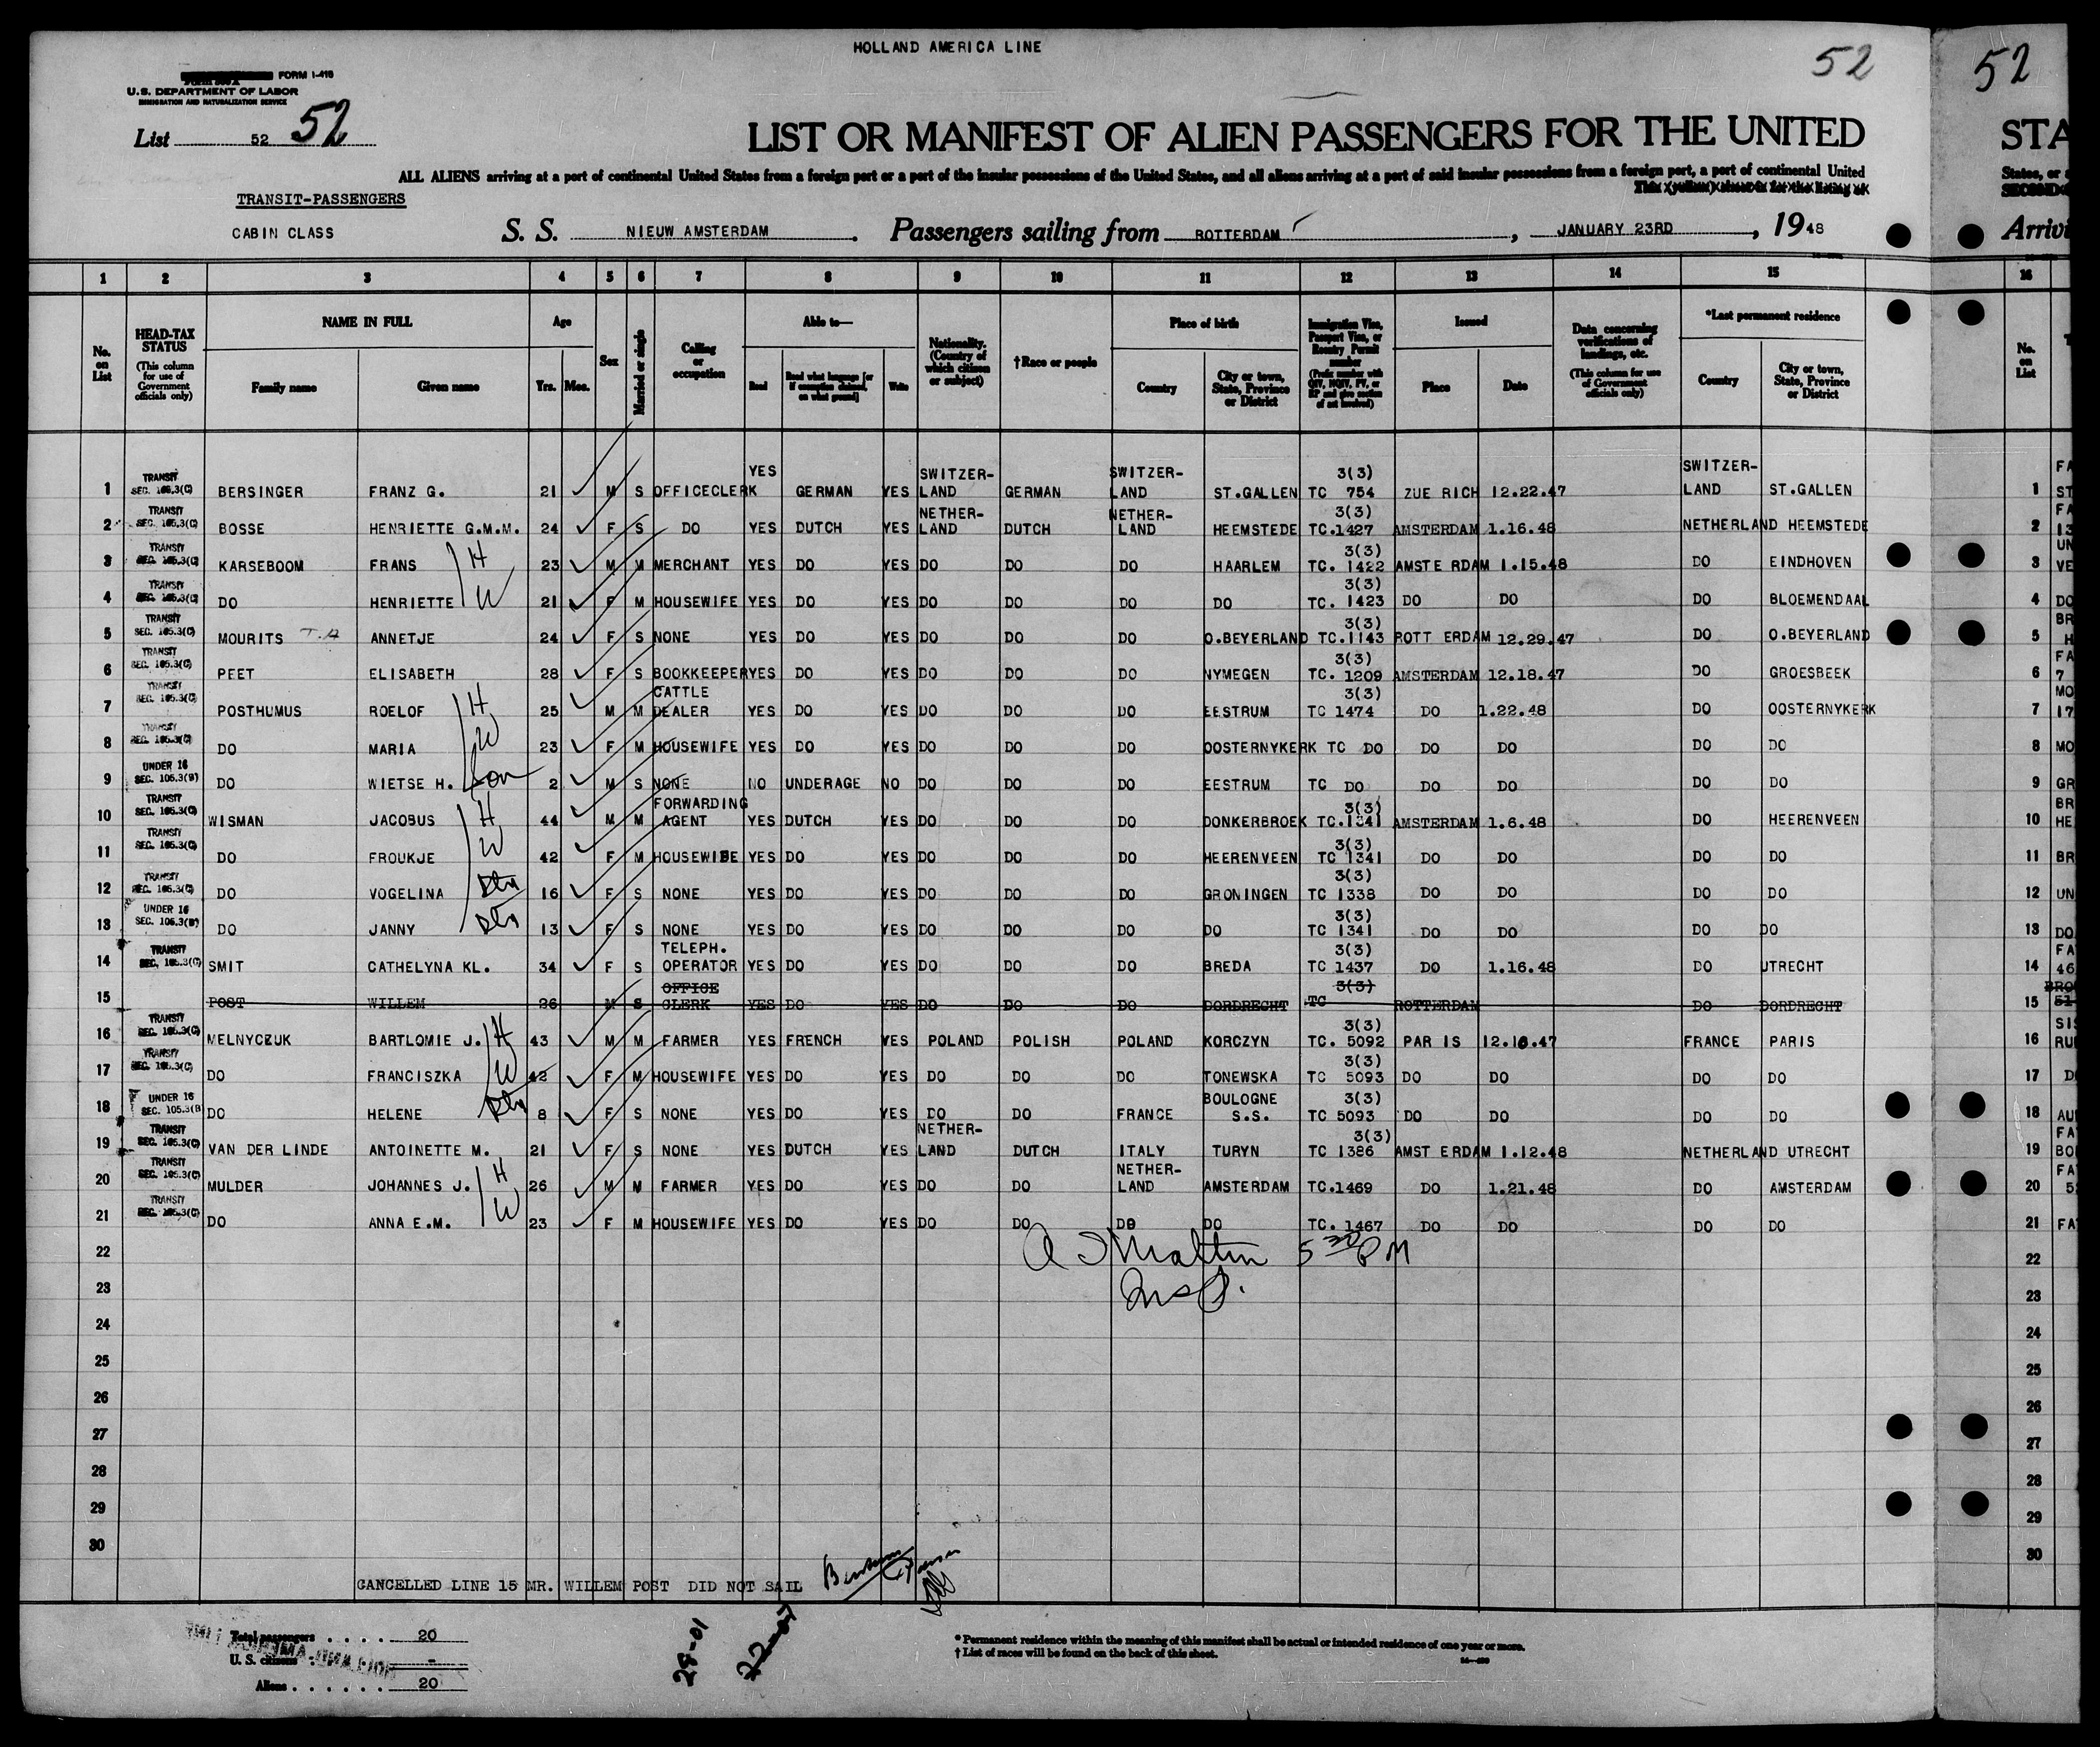 HOLLAND AMERICA LINE
52
52
FORM I-418
U.S. DEPARTMENT OF LABOR
IMMIGRATION AND NATURALIZATION SERVICE
List 52 52
LIST OR MANIFEST OF ALIEN PASSENGERS FOR THE UNITED
STA
ALL ALIENS arriving at a port of continental United States from a foreign port or a port of the insular possessions of the United States, and all aliens arriving at a port of said insular possessions from a foreign port, a port of continental United
States, or
TRANSIT-PASSENGERS
CABIN CLASS
S. S. NIEUW AMSTERDAM. Passengers sailing from ROTTERDAM, JANUARY 23RD, 1948
Arrivi
1 2 3 4 5 6 7 8 9 10 11 12 13 14 15 16
No. on List
HEAD-TAX STATUS (This column for use of Government officials only)
NAME IN FULL
Family name Given name
Age
Yrs. Mos.
Sex
Married or single
Calling or occupation
Able to—
Read
Read what language [or if exemption claimed, on what ground]
Write
Nationality. (Country of which citizen or subject)
†Race or people
Place of birth
Country
City or town, State, Province or District
Immigration Visa, Passport Visa, or Reentry Permit number (Prefix number with QIV, NQIV, PV, or RP and give section of act involved)
Issued
Place Date
Data concerning verifications of landings, etc. (This column for use of Government officials only)
*Last permanent residence
Country
City or town, State, Province or District
No. on List
1 TRANSIT SEC. 105.3(C) BERSINGER FRANZ G. 21 M S OFFICECLERK YES GERMAN YES SWITZER-LAND GERMAN SWITZER-LAND ST.GALLEN 3(3) TC 754 ZUE RICH 12.22.47 SWITZER-LAND ST.GALLEN 1
2 TRANSIT SEC. 105.3(C) BOSSE HENRIETTE G.M.M. 24 F S DO YES DUTCH YES NETHER-LAND DUTCH NETHER-LAND HEEMSTEDE 3(3) TC.1427 AMSTERDAM 1.16.48 NETHERLAND HEEMSTEDE 2
3 TRANSIT SEC. 105.3(C) KARSEBOOM FRANS H 23 M M MERCHANT YES DO YES DO DO DO HAARLEM 3(3) TC. 1422 AMSTE RDAM 1.15.48 DO EINDHOVEN 3
4 TRANSIT SEC. 105.3(C) DO HENRIETTE W 21 F M HOUSEWIFE YES DO YES DO DO DO DO 3(3) TC. 1423 DO DO DO BLOEMENDAAL 4
5 TRANSIT SEC. 105.3(C) MOURITS ANNETJE 24 F S NONE YES DO YES DO DO DO O.BEYERLAND 3(3) TC.1143 ROTT ERDAM 12.29.47 DO O.BEYERLAND 5
6 TRANSIT SEC. 105.3(C) PEET ELISABETH 28 F S BOOKKEEPER YES DO YES DO DO DO NYMEGEN 3(3) TC. 1209 AMSTERDAM 12.18.47 DO GROESBEEK 6
7 TRANSIT SEC. 105.3(C) POSTHUMUS ROELOF H 25 M M CATTLE DEALER YES DO YES DO DO DO EESTRUM 3(3) TC 1474 DO 1.22.48 DO OOSTERNYKERK 7
8 TRANSIT SEC. 105.3(C) DO MARIA W 23 F M HOUSEWIFE YES DO YES DO DO DO OOSTERNYKERK TC DO DO DO DO DO 8
9 UNDER 16 SEC. 105.3(B) DO WIETSE H. Son 2 M S NONE NO UNDERAGE NO DO DO DO EESTRUM TC DO DO DO DO DO 9
10 TRANSIT SEC. 105.3(C) WISMAN JACOBUS H 44 M M FORWARDING AGENT YES DUTCH YES DO DO DO DONKERBROEK 3(3) TC.1341 AMSTERDAM 1.6.48 DO HEERENVEEN 10
11 TRANSIT SEC. 105.3(C) DO FROUKJE W 42 F M HOUSEWIFE YES DO YES DO DO DO HEERENVEEN 3(3) TC 1341 DO DO DO DO 11
12 TRANSIT SEC. 105.3(C) DO VOGELINA Dtr 16 F S NONE YES DO YES DO DO DO GRONINGEN 3(3) TC 1338 DO DO DO DO 12
13 UNDER 16 SEC. 105.3(B) DO JANNY Dtr 13 F S NONE YES DO YES DO DO DO DO 3(3) TC 1341 DO DO DO DO 13
14 TRANSIT SEC. 105.3(C) SMIT CATHELYNA KL. 34 F S TELEPH. OPERATOR YES DO YES DO DO DO BREDA 3(3) TC 1437 DO 1.16.48 DO UTRECHT 14
15 POST WILLEM 26 M S OFFICE CLERK YES DO YES DO DO DO DORDRECHT 3(3) TC ROTTERDAM DO DORDRECHT 15
16 TRANSIT SEC. 105.3(C) MELNYCZUK BARTLOMIE J. H 43 M M FARMER YES FRENCH YES POLAND POLISH POLAND KORCZYN 3(3) TC. 5092 PAR IS 12.16.47 FRANCE PARIS 16
17 TRANSIT SEC. 105.3(C) DO FRANCISZKA W 42 F M HOUSEWIFE YES DO YES DO DO DO TONEWSKA 3(3) TC 5093 DO DO DO DO 17
18 UNDER 16 SEC. 105.3(B) DO HELENE Dtr 8 F S NONE YES DO YES DO DO FRANCE BOULOGNE S.S. 3(3) TC 5093 DO DO DO DO 18
19 TRANSIT SEC. 105.3(C) VAN DER LINDE ANTOINETTE M. 21 F S NONE YES DUTCH YES NETHER-LAND DUTCH ITALY TURYN 3(3) TC 1386 AMST ERDAM 1.12.48 NETHERLAND UTRECHT 19
20 TRANSIT SEC. 105.3(C) MULDER JOHANNES J. H 26 M M FARMER YES DO YES DO DO NETHER-LAND AMSTERDAM TC.1469 DO 1.21.48 DO AMSTERDAM 20
21 TRANSIT SEC. 105.3(C) DO ANNA E.M. W 23 F M HOUSEWIFE YES DO YES DO DO DO DO TC. 1467 DO DO DO DO 21
22 5 30 PM 22
23 Insp. 23
24 24
25 25
26 26
27 27
28 28
29 29
30 30
CANCELLED LINE 15 MR. WILLEM POST DID NOT SAIL
Total passengers . . . . 20
U. S. citizens -
Aliens . . . . . . 20
28-01
22-07
* Permanent residence within the meaning of this manifest shall be actual or intended residence of one year or more.
† List of races will be found on the back of this sheet.